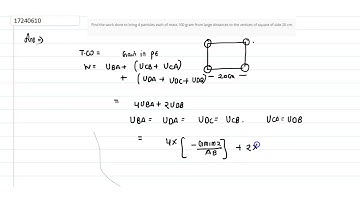 17240610
Find the work done to bring 4 particles each of mass 100 gram from large distances to the vertices of square of side 20 cm.
Ans →
T.W = Gain in PE
W = UBA + (UCB + UCA)
+ (UDA + UDC + UDB)
← 20cm →
= 4UBA + 2UDB
UBA = UDA = UDC = UCB. UCA = UDB
= 4× [ -Gm1m2 / AB ] + 2×